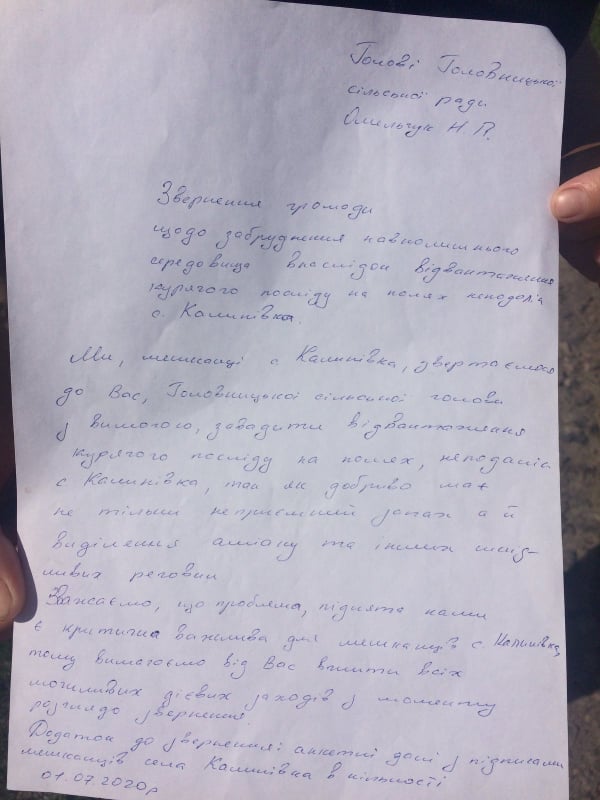 Голові Головницької
сільської ради
Омельчук Н. П.
Звернення громади
щодо забруднення навколишнього
середовища внаслідок відвантаження
курячого посліду на полях неподалік
с. Калинівка.
Ми, мешканці с. Калинівка, звертаємось
до Вас, Головницької сільської голови
з вимогою, завадити відвантаження
курячого посліду на полях, неподалік
с Калинівка, так як добриво має
не тільки неприємний запах а й
виділення аміаку та інших шкід-
ливих речовин
Вважаємо, що проблема, піднята нами
є критично важлива для мешканців с. Калинівка,
тому вимагаємо від Вас вжити всіх
можливих дієвих заходів з моменту
розгляду звернення.
Додаток до звернення: анкетні дані з підписами
мешканців села Калинівка в кількості
01.07.2020р